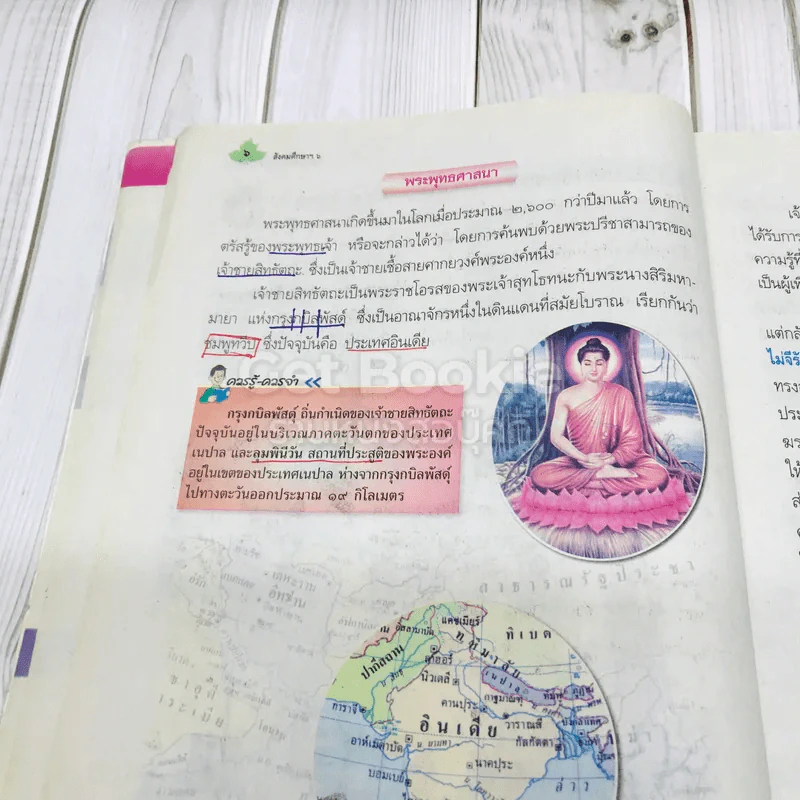 ๖ สังคมศึกษาฯ ๖
พระพุทธศาสนา
พระพุทธศาสนาเกิดขึ้นมาในโลกเมื่อประมาณ ๒,๖๐๐ กว่าปีมาแล้ว โดยการ
ตรัสรู้ของพระพุทธเจ้า หรือจะกล่าวได้ว่า โดยการค้นพบด้วยพระปรีชาสามารถของ
เจ้าชายสิทธัตถะ ซึ่งเป็นเจ้าชายเชื้อสายศากยวงศ์พระองค์หนึ่ง
เจ้าชายสิทธัตถะเป็นพระราชโอรสของพระเจ้าสุทโธทนะกับพระนางสิริมหา-
มายา แห่งกรุงกบิลพัสดุ์ ซึ่งเป็นอาณาจักรหนึ่งในดินแดนที่สมัยโบราณ เรียกกันว่า
ชมพูทวีป ซึ่งปัจจุบันคือ ประเทศอินเดีย
ควรรู้-ควรจำ
กรุงกบิลพัสดุ์ ถิ่นกำเนิดของเจ้าชายสิทธัตถะ
ปัจจุบันอยู่ในบริเวณภาคตะวันตกของประเทศ
เนปาล และลุมพินีวัน สถานที่ประสูติของพระองค์
อยู่ในเขตของประเทศเนปาล ห่างจากกรุงกบิลพัสดุ์
ไปทางตะวันออกประมาณ ๑๙ กิโลเมตร
Get Bookie
สาธารณรัฐประชา
แคชเมียร์
อิสลามาบัด
ทิเบต
ปากีสถาน
ลาฮอร์
หิมาลัย
นิวเดลี
เนปาล
กาฐมาณฑุ
คานปุระ
การาจี
พาราณสี
อินเดีย
กัลกัตตา
อาห์เมดาบัด
นาคปุระ
บอมเบย์
เจ้
ได้รับการ
ความรู้ที่
เป็นผู้เ
แต่กล
ไม่จีรั
ทรง
ประ
ให้